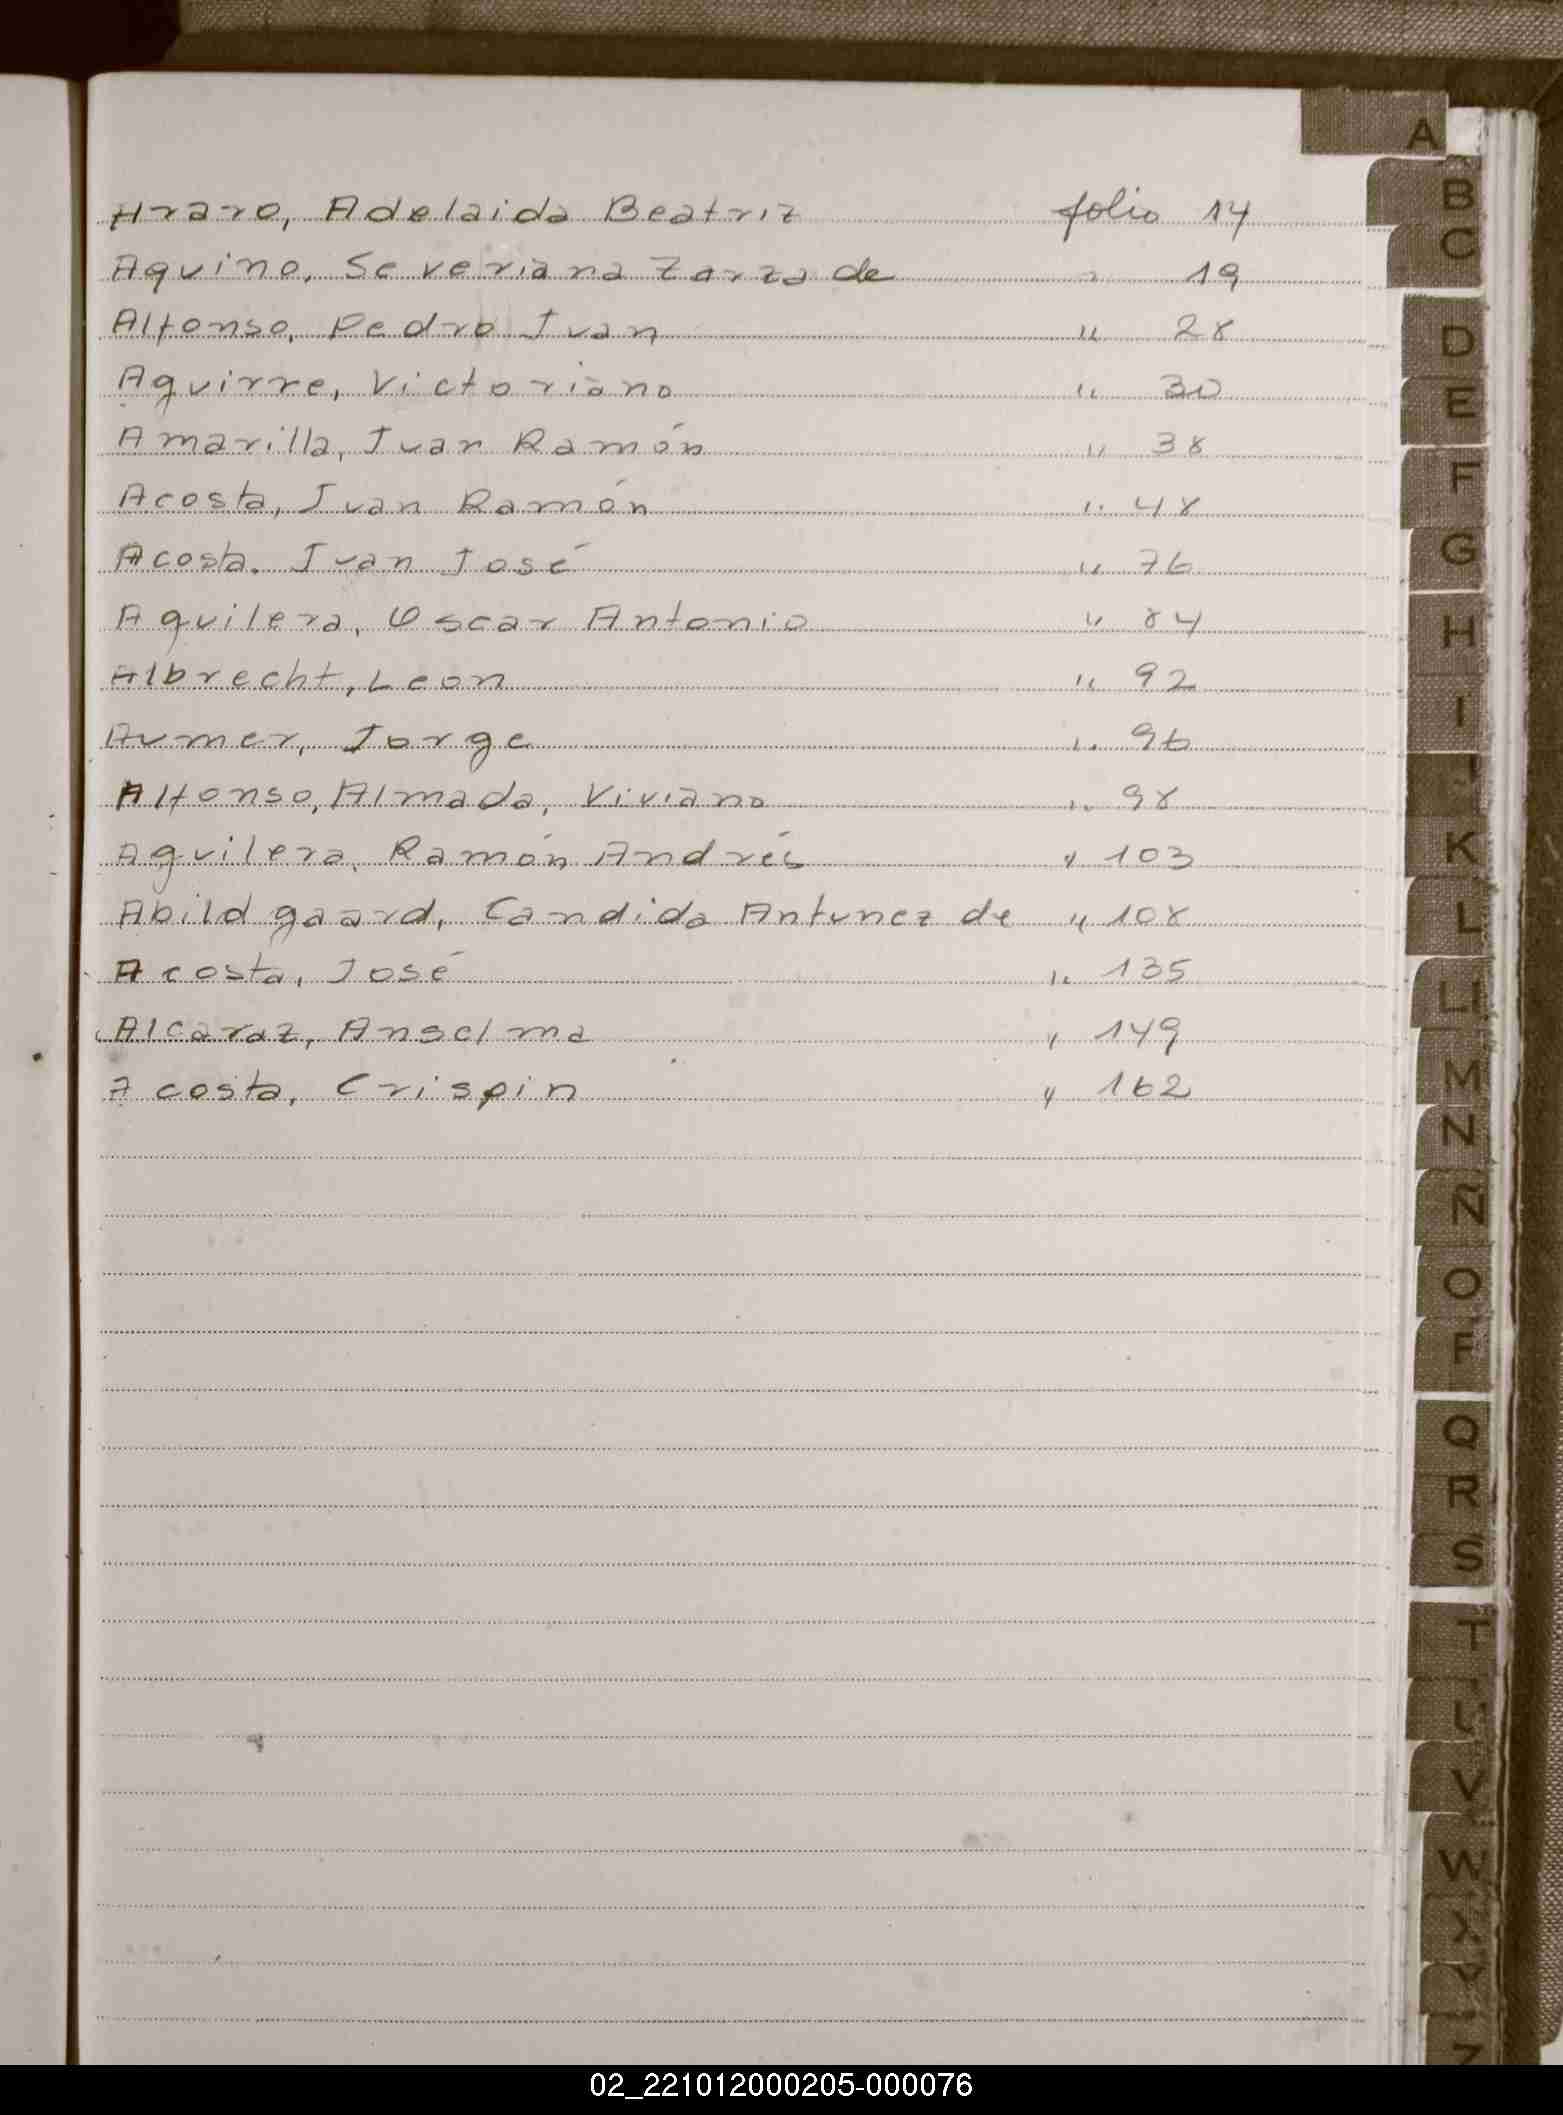 Araro, Adelaida Beatriz folio 14
Aquino, Severiana Zarza de " 19
Alfonso, Pedro Juan " 28
Aguirre, Victoriano " 30
Amarilla, Juan Ramón " 38
Acosta, Juan Ramón " 48
Acosta, Juan José " 76
Aguilera, Oscar Antonio " 84
Albrecht, Leon " 92
Aumer, Jorge " 96
Alfonso, Almada, Viviano " 98
Aguilera, Ramón Andrés " 103
Abildgaard, Candida Antunez de " 108
Acosta, José " 135
Alcaraz, Anselma " 149
Acosta, Crispin " 162
A
B
C
D
E
F
G
H
I
K
L
Ll
M
N
Ñ
O
P
Q
R
S
T
U
V
W
X
Y
Z
02_221012000205-000076